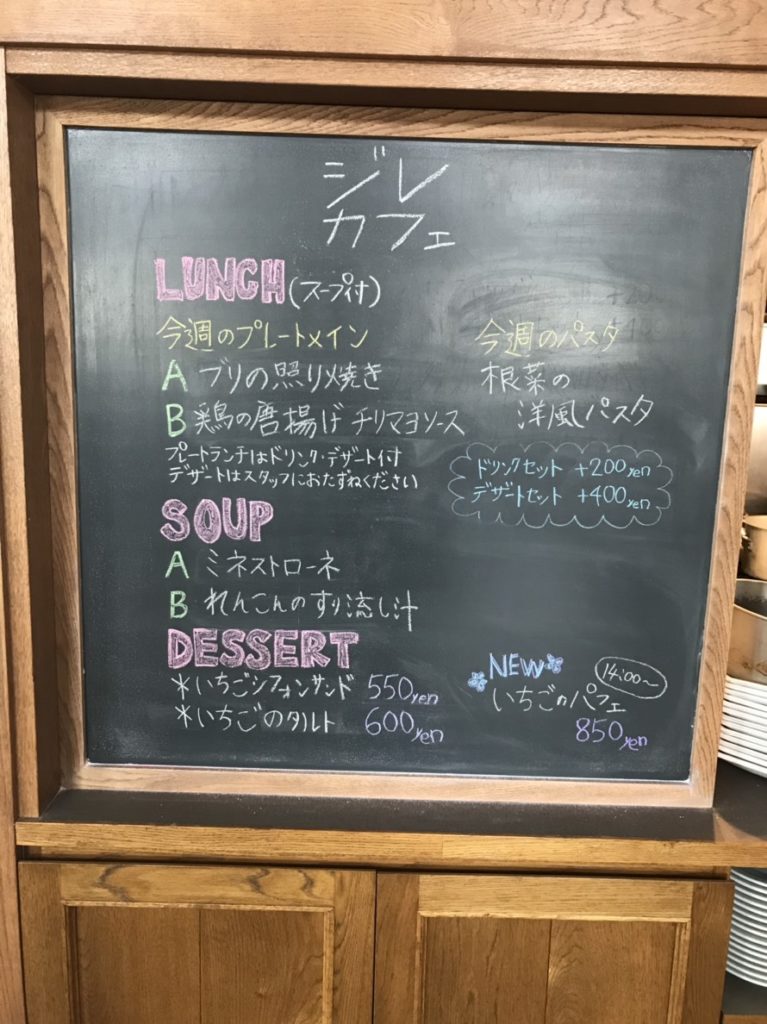 ジレ
カフェ
LUNCH (スープ付)
今週のプレートメイン
A ブリの照り焼き
B 鶏の唐揚げ チリマヨソース
プレートランチはドリンク・デザート付
デザートはスタッフにおたずねください
今週のパスタ
根菜の
洋風パスタ
ドリンクセット +200yen
デザートセット +400yen
SOUP
A ミネストローネ
B れんこんのすり流し汁
DESSERT
*いちごシフォンサンド 550yen
*いちごのタルト 600yen
NEW
14:00~
いちごのパフェ
850yen